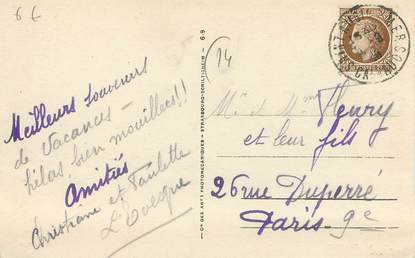 6€
14
Meilleurs souvenirs
de Vacances –
hélas, bien mouillées!!
Amitiés
Christiane et Paulette
Levesque
Cie DES ARTS PHOTOMÉCANIQUES - STRASBOURG-SCHILTIGHEIM - 6-9
Mr et Mme Fleury
et leur fils
26 rue Duperré
Paris. 9e